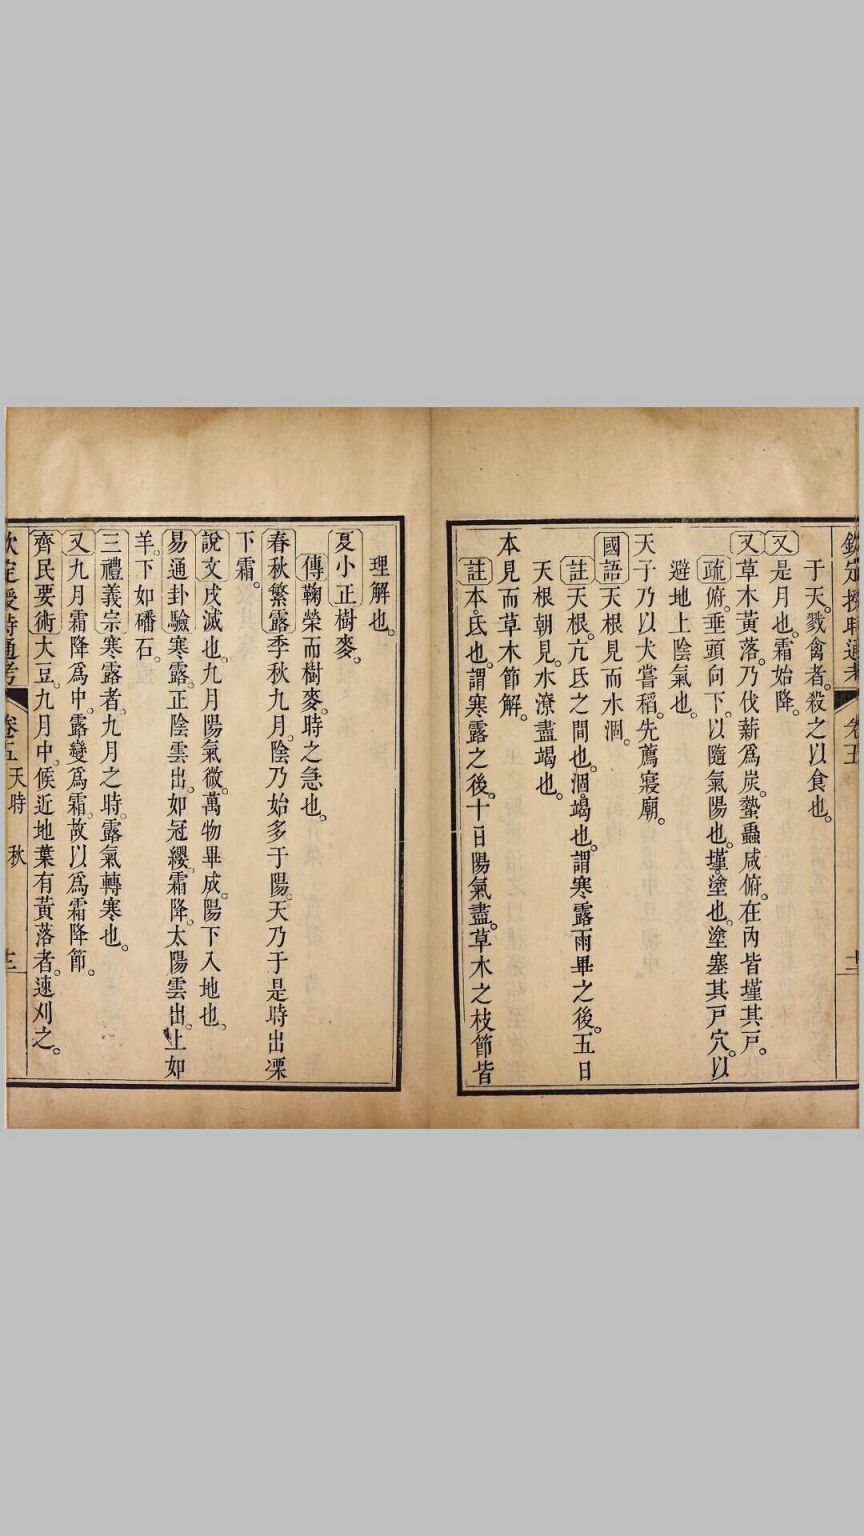 欽定授時通考 卷五
于天。戮禽者。殺之以食也。
又是月也。霜始降。
又草木黃落。乃伐薪爲炭。蟄蟲咸俯。在內皆墐其戸。
疏俯。垂頭向下。以隨氣陽也。墐。塗也。塗塞其戸穴。以
避地上陰氣也。
天子乃以犬嘗稻。先薦寢廟。
國語天根見而水涸。
註天根。亢氐之間也。涸。竭也。謂寒露雨畢之後。五日
天根朝見。水潦盡竭也。
本見而草木節解。
註本。氐也。謂寒露之後。十日陽氣盡。草木之枝節皆
理解也。
夏小正樹麥。
傳鞠榮而樹麥。時之急也。
春秋繁露季秋九月。陰乃始多于陽。天乃于是時出凓
下霜。
說文戌。滅也。九月陽氣微。萬物畢成。陽下入地也。
易通卦驗寒露。正陰雲出。如冠纓。霜降。太陽雲出。上如
羊。下如磻石。
三禮義宗寒露者。九月之時。露氣轉寒也。
又九月霜降爲中。露變爲霜。故以爲霜降節。
齊民要術大豆。九月中。候近地葉有黃落者。速刈之。
欽定授時通考 卷五 天時 秋